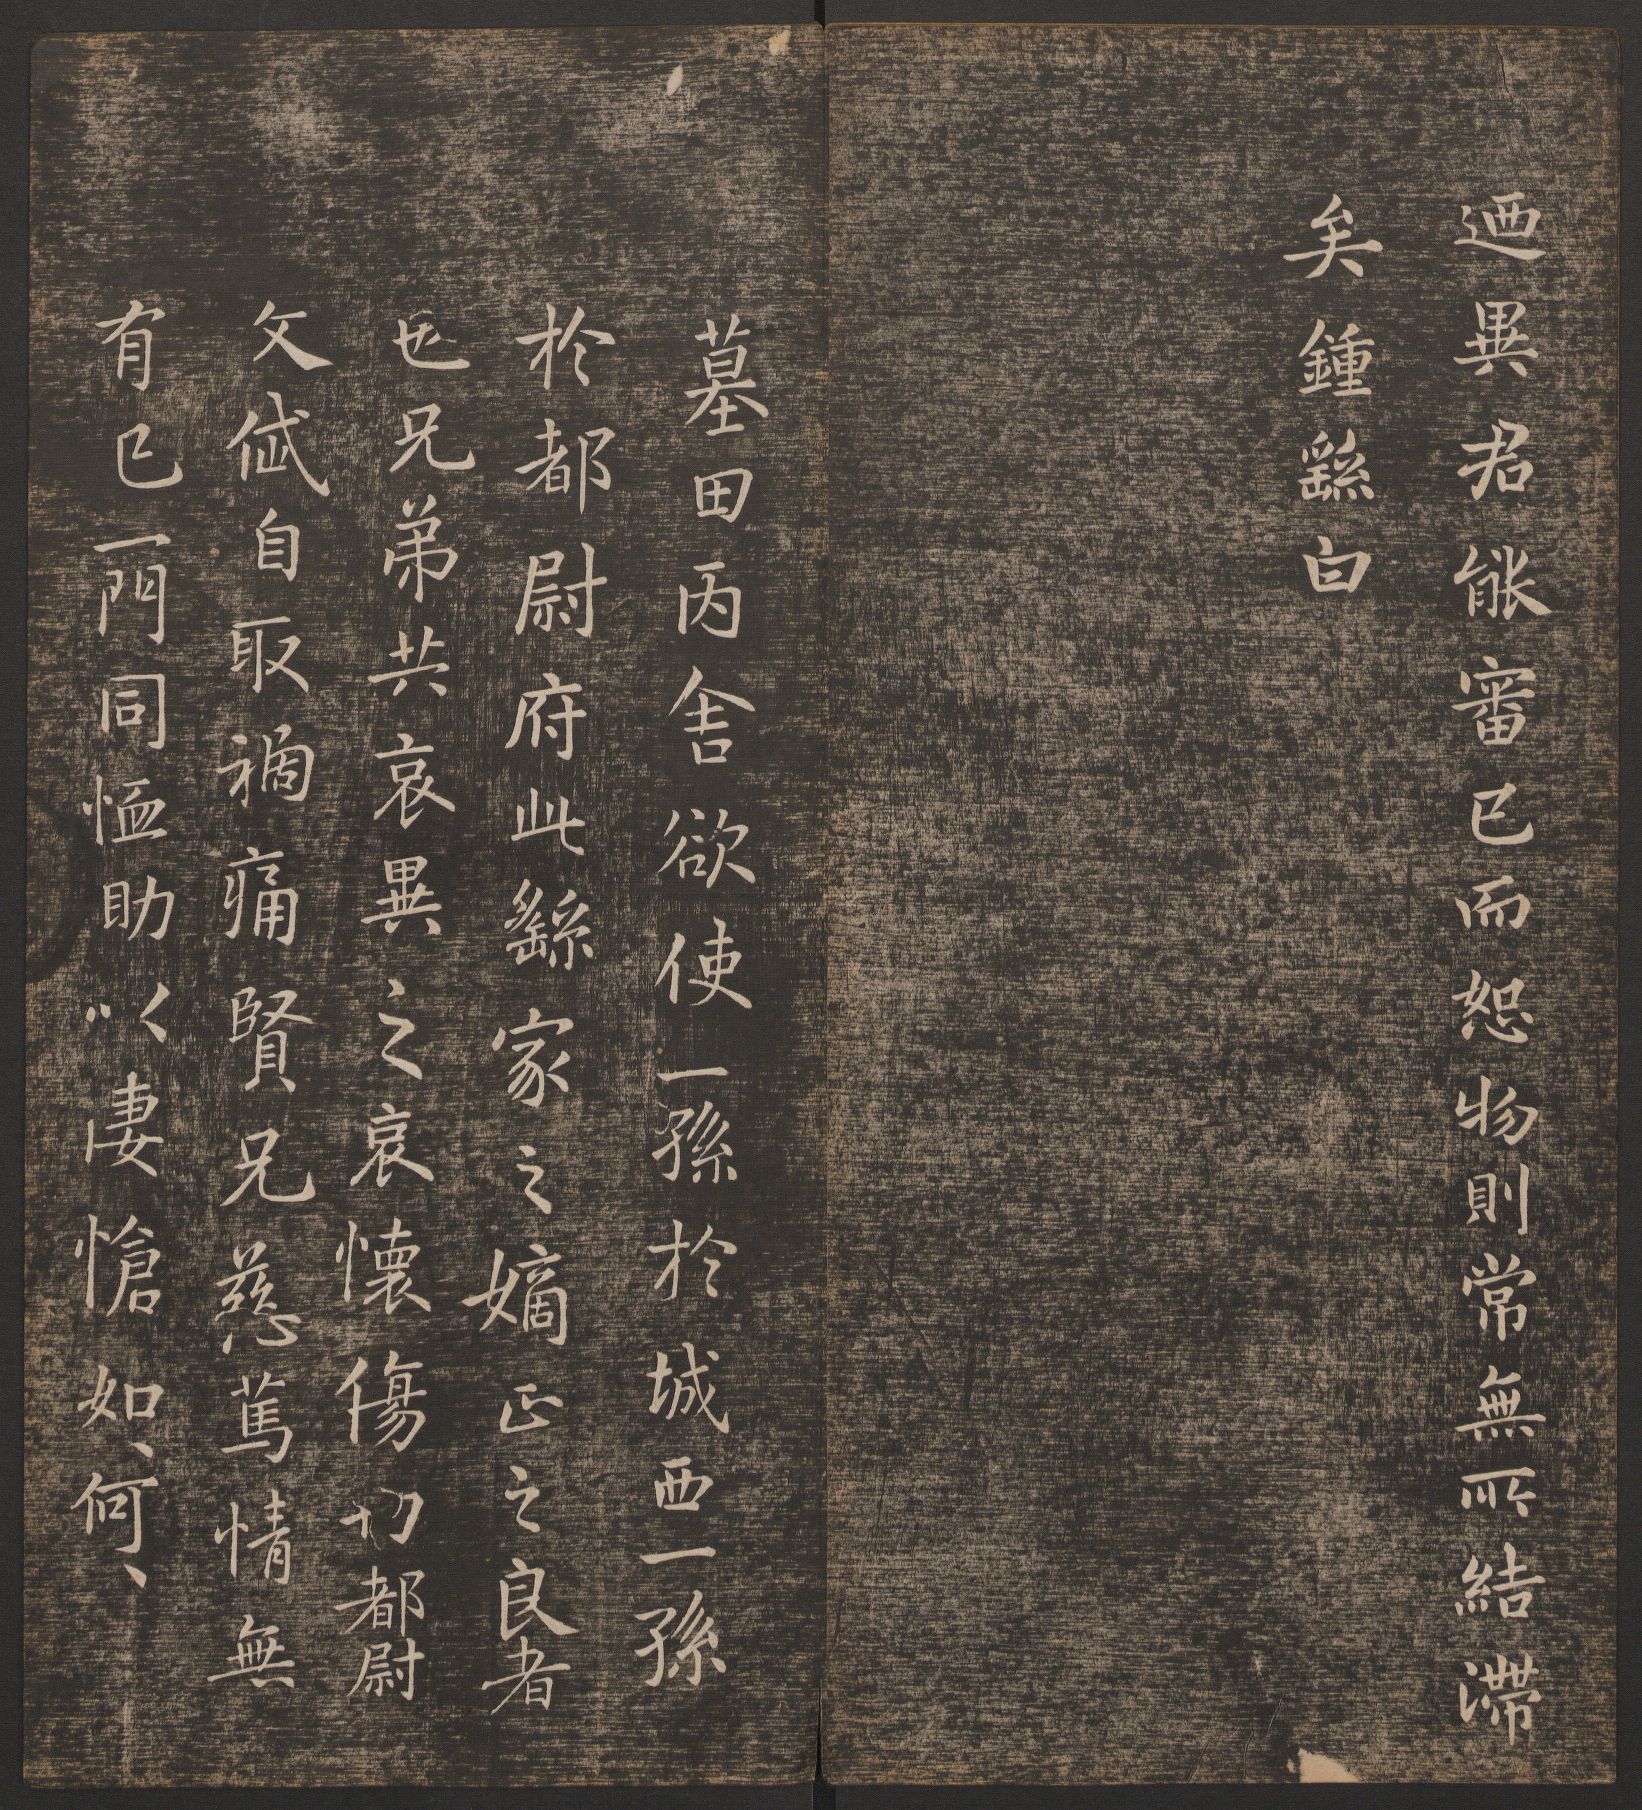 迺異君能審已而恕物則常無所結滯
矣鍾繇白
墓田丙舍欲使一孫於城西一孫
於都尉府此繇家之嫡正之良者
也兄弟共哀異之哀懷傷切都尉
文俗自取禍痛賢兄慈篤情無
有已一門同恤助以悽愴如、何、